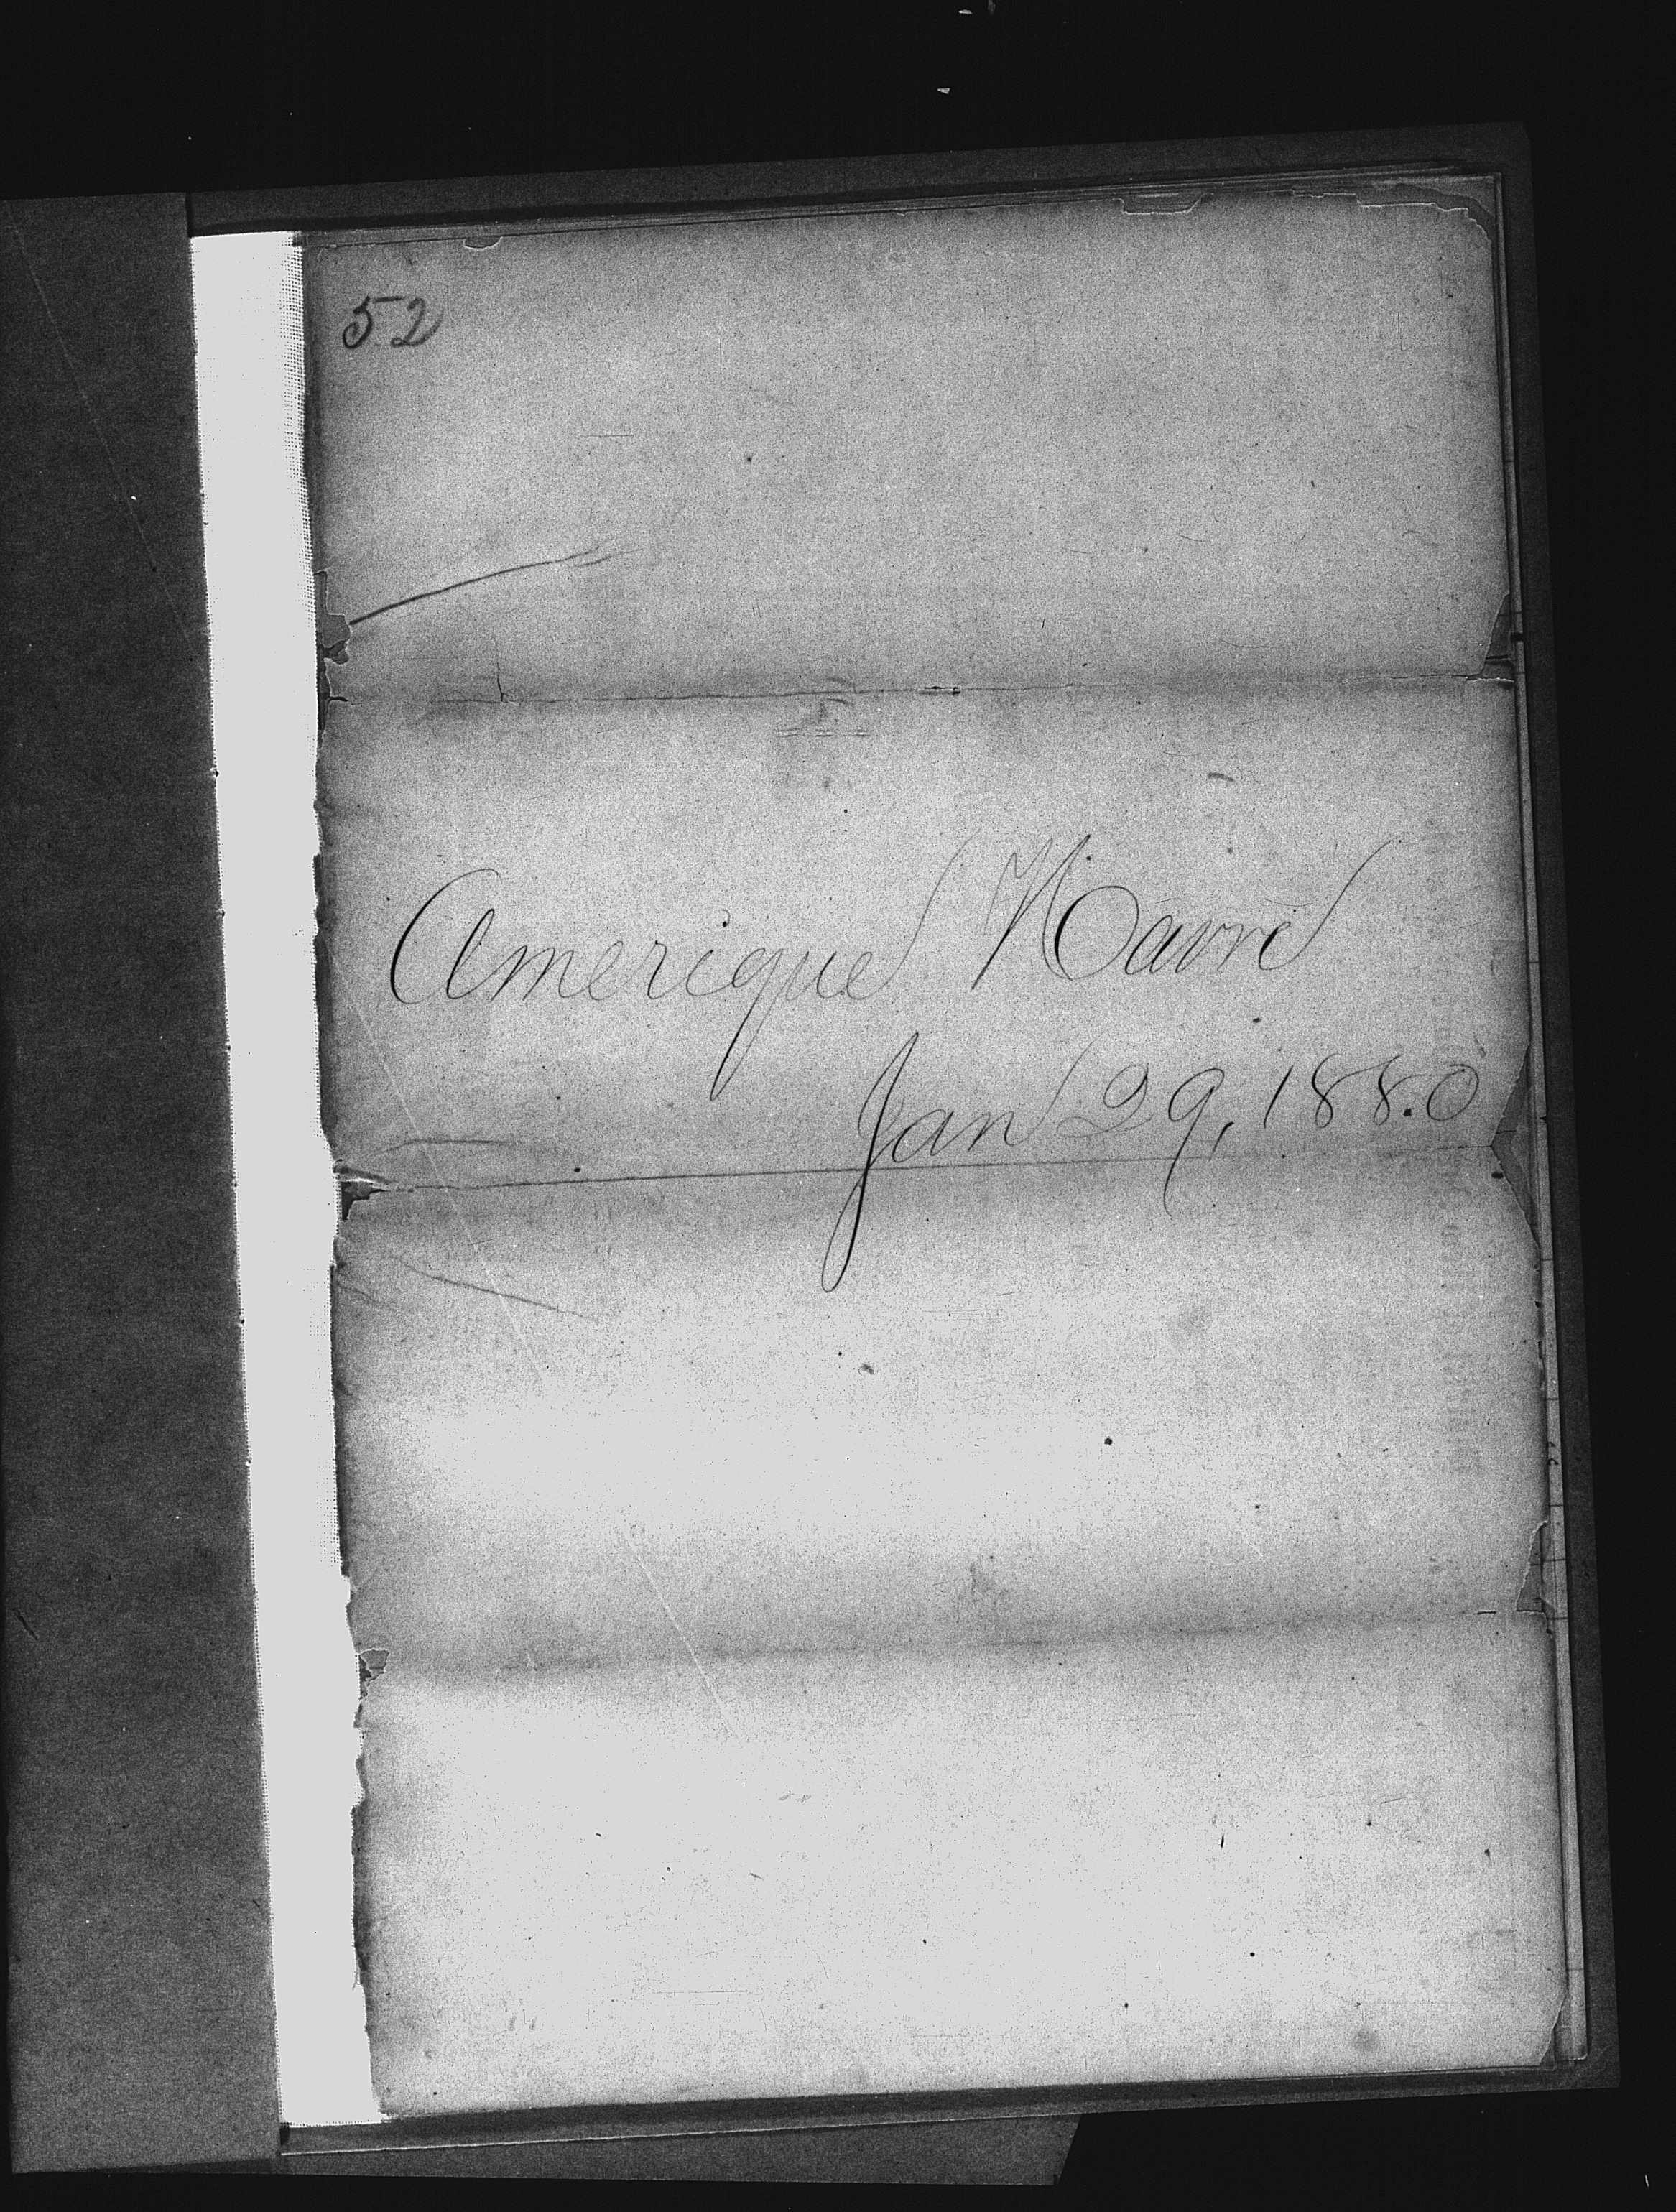 52
Amerique Havre
Jan 29, 1880